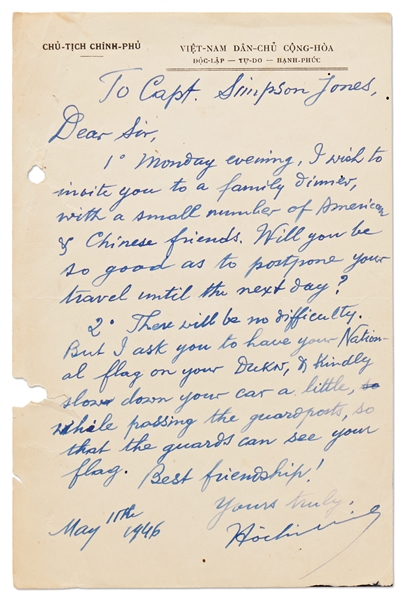 CHỦ-TỊCH CHÍNH-PHỦ
VIỆT-NAM DÂN-CHỦ CỘNG-HÒA
ĐỘC-LẬP — TỰ-DO — HẠNH-PHÚC
To Capt. Simpson Jones,
Dear Sir,
1° Monday evening, I wish to
invite you to a family dinner,
with a small number of American
& Chinese friends. Will you be
so good as to postpone your
travel until the next day?
2° There will be no difficulty.
But I ask you to have your Nation-
al flag on your , & kindly
slow down your car a little,
while passing the guardposts, so
that the guards can see your
flag. Best friendship!
Yours truly,
May 11th
1946
Hochiminh